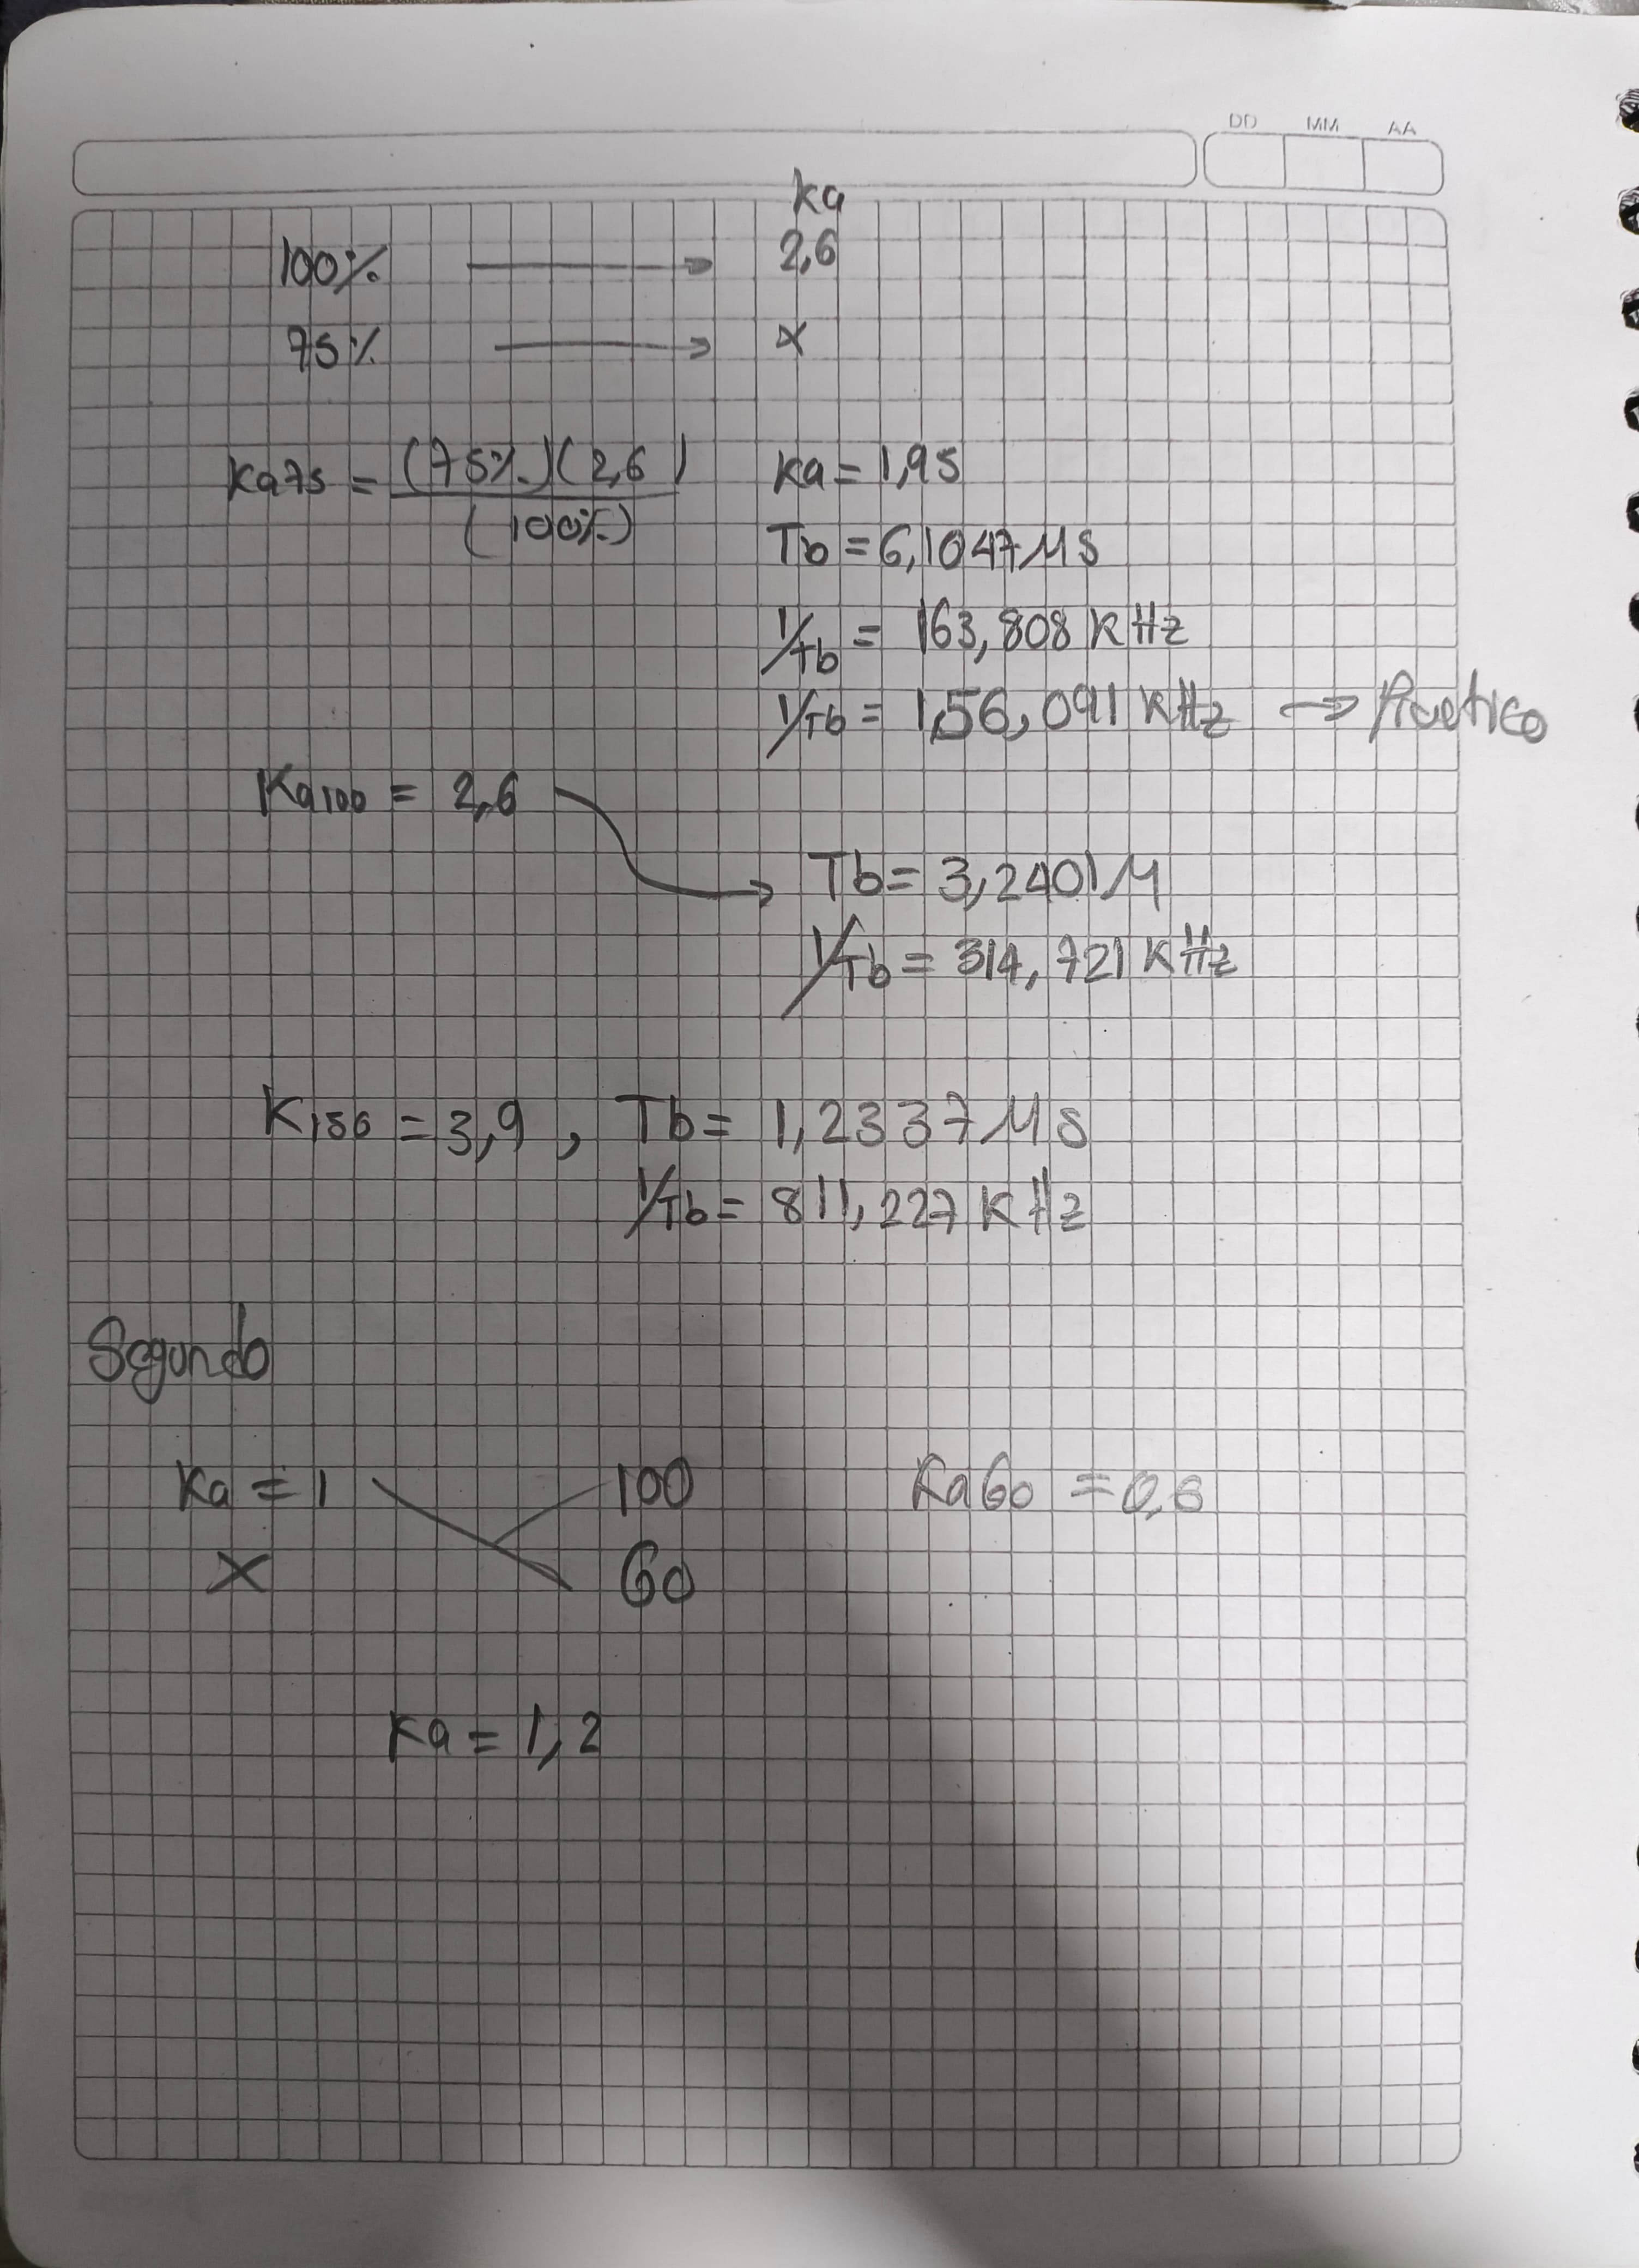 DD MM AA
ka
100% → 2,6
75% → x
Ka75 = (75%)(2,6)
(100%)
ka = 1,95
Tb = 6,1047 Ms
1/Tb = 163,808 KHz
1/Tb = 1,56,091 KHz →
Ka100 = 2,6
Tb = 3,2401 M
1/Tb = 314,721 KHz
K150 = 3,9 , Tb = 1,2337 Ms
1/Tb = 811,227 KHz
Segundo
Ka = 1 100 Ka60 = 0,6
X 60
Ka = 1,2